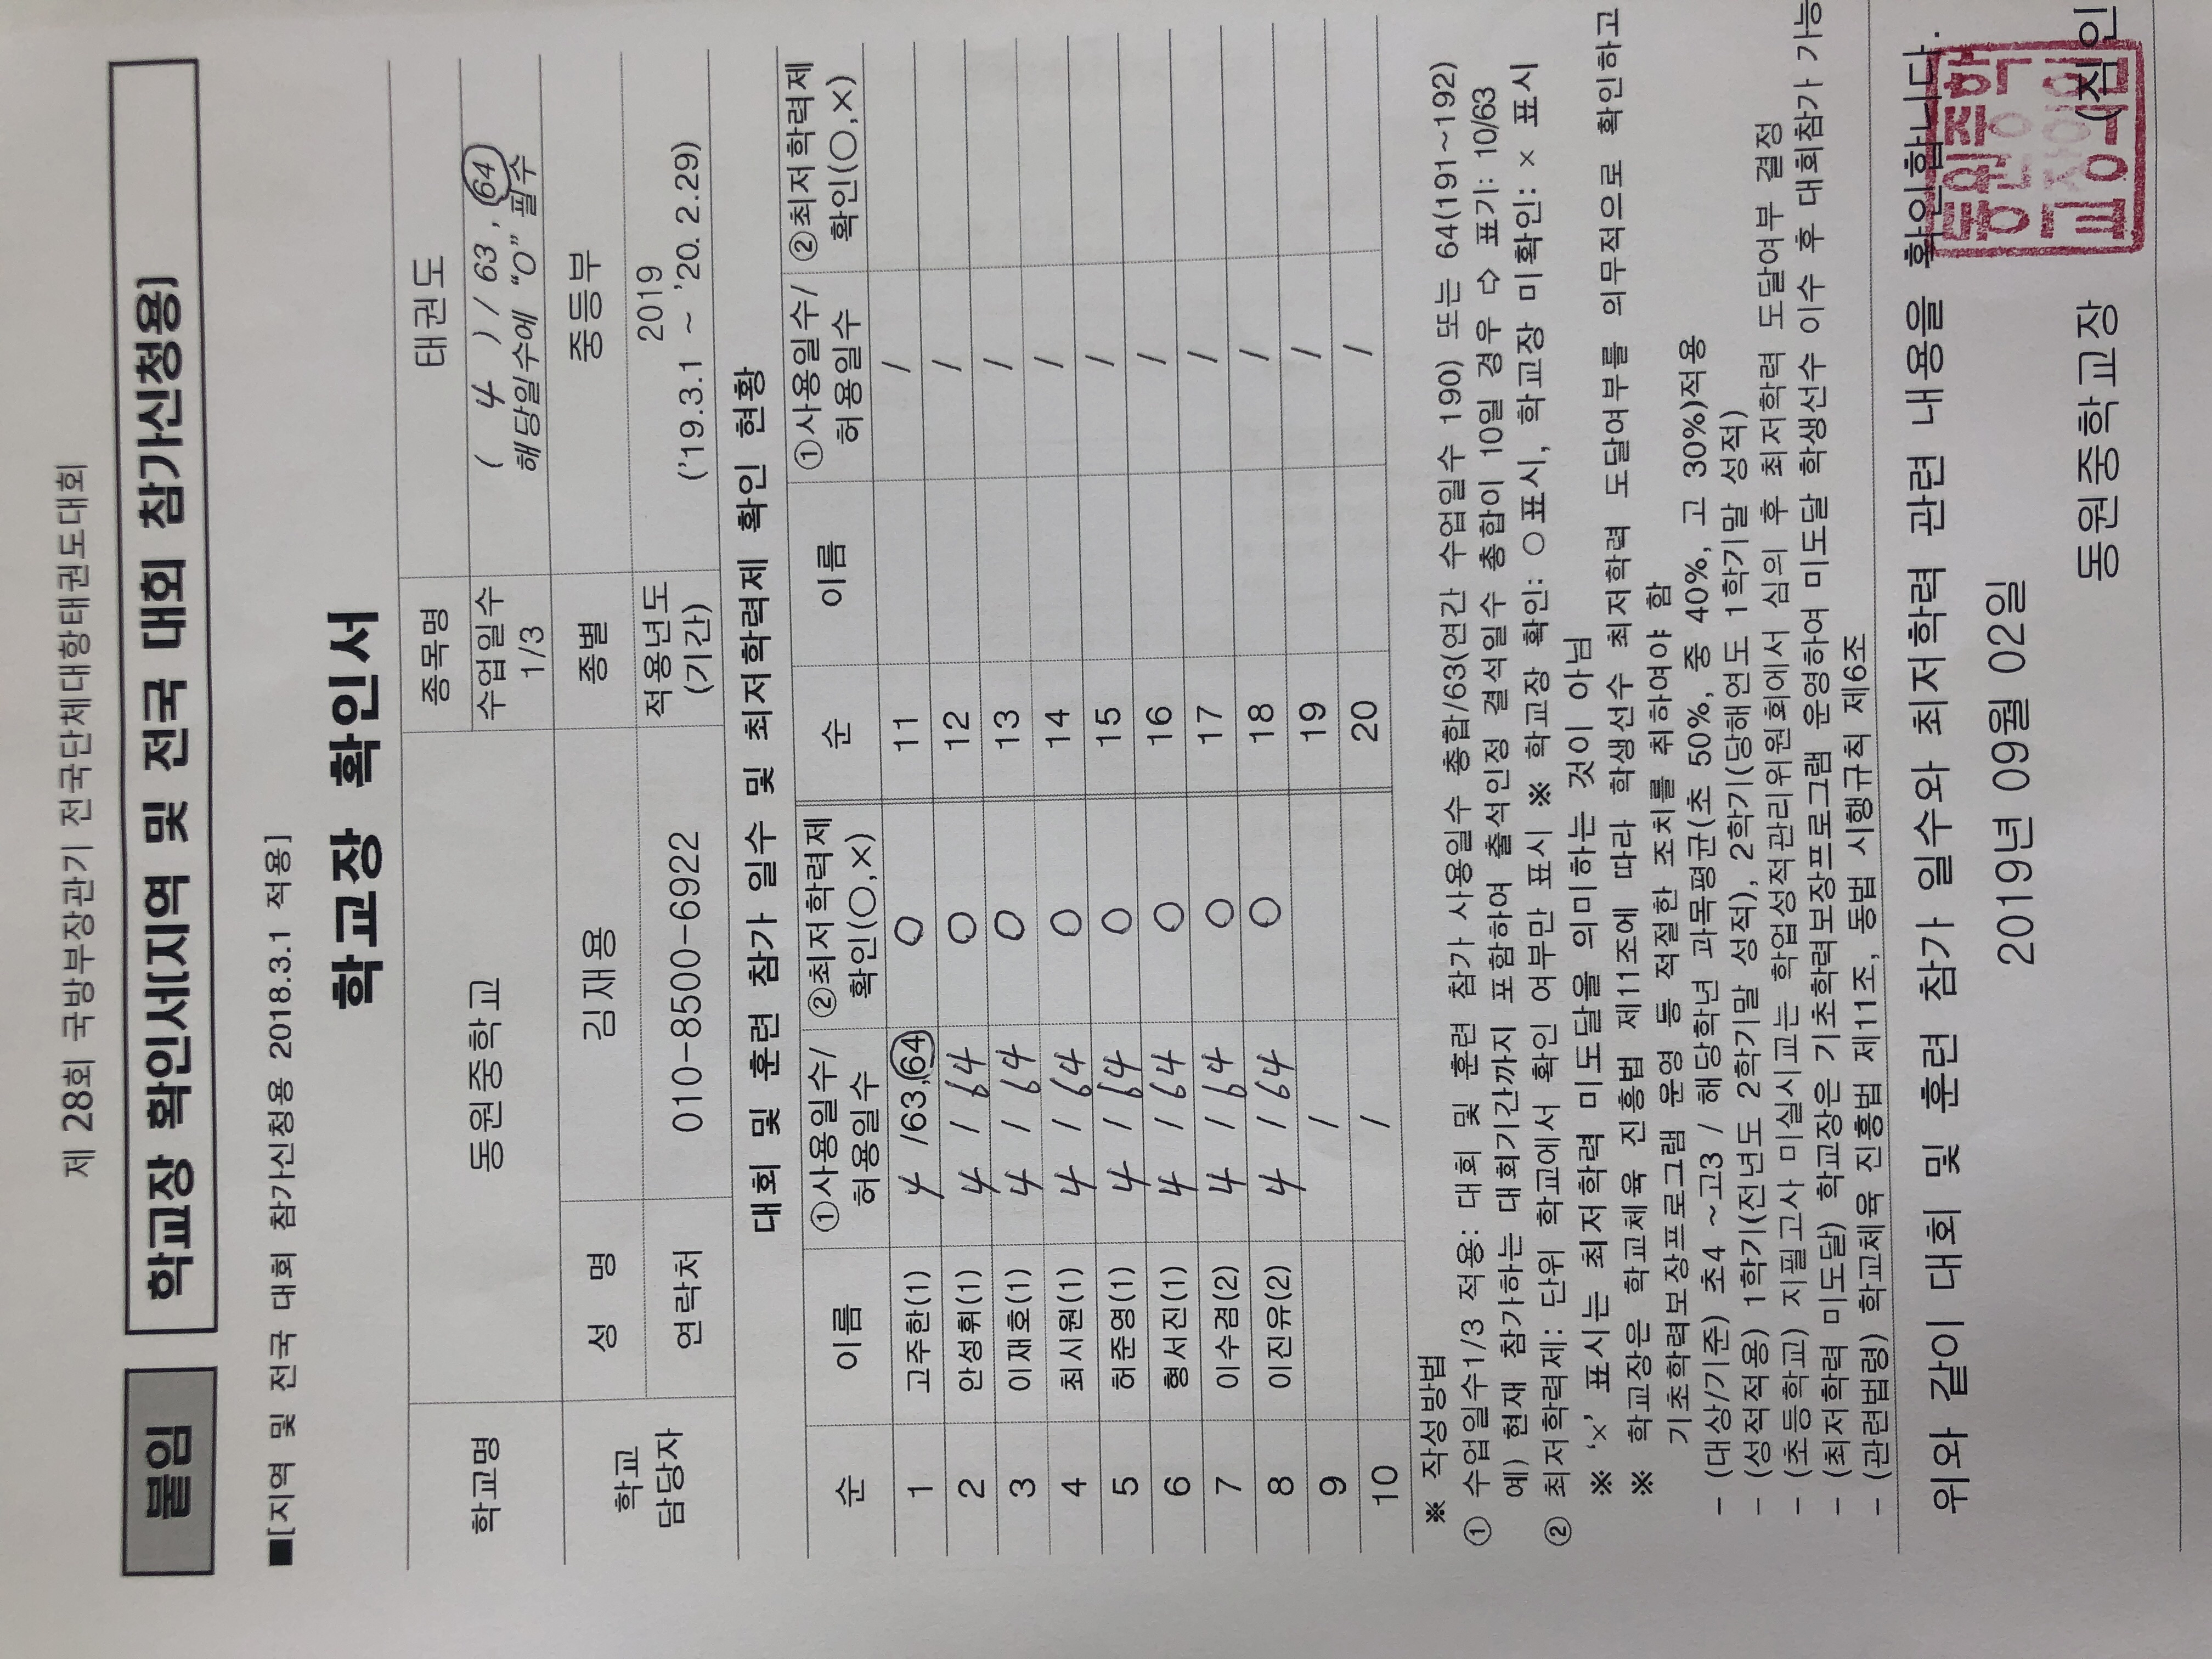 제 28회 국방부장관기 전국단체대항태권도대회
붙임 학교장 확인서(지역 및 전국 대회 참가신청용)
■[지역 및 전국 대회 참가신청용 2018.3.1 적용]
학교장 확인서
학교명 동원중학교 종목명 태권도
수업일수 1/3 ( 4 ) / 63 , 64
해당일수에 "O" 필수
학교 담당자 성 명 김재용 종별 중등부
연락처 010-8500-6922 적용년도 (기간) 2019
('19.3.1 ~ '20. 2.29)
대회 및 훈련 참가 일수 및 최저학력제 확인 현황
순 이름 ①사용일수/허용일수 ②최저학력제 확인(○,×) 순 이름 ①사용일수/허용일수 ②최저학력제 확인(○,×)
1 고주한(1) 4 /63,64 ○ 11 /
2 안성휘(1) 4 / 64 ○ 12 /
3 이재호(1) 4 / 64 ○ 13 /
4 최시원(1) 4 / 64 ○ 14 /
5 허준영(1) 4 / 64 ○ 15 /
6 형서진(1) 4 / 64 ○ 16 /
7 이수겸(2) 4 / 64 ○ 17 /
8 이진유(2) 4 / 64 ○ 18 /
9 / 19 /
10 / 20 /
※ 작성방법
① 수업일수1/3 적용: 대회 및 훈련 참가 사용일수 총합/63(연간 수업일수 190) 또는 64(191~192)
예) 현재 참가하는 대회기간까지 포함하여 출석인정 결석일수 총합이 10일 경우 ⇨ 표기: 10/63
② 최저학력제: 단위 학교에서 확인 여부만 표시 ※ 학교장 확인: ○표시, 학교장 미확인: × 표시
※ '×' 표시는 최저학력 미도달을 의미하는 것이 아님
※ 학교장은 학교체육 진흥법 제11조에 따라 학생선수 최저학력 도달여부를 의무적으로 확인하고
기초학력보장프로그램 운영 등 적절한 조치를 취하여야 함
- (대상/기준) 초4 ~고3 / 해당학년 과목평균(초 50%, 중 40%, 고 30%)적용
- (성적적용) 1학기(전년도 2학기말 성적), 2학기(당해연도 1학기말 성적)
- (초등학교) 지필고사 미실시교는 학업성적관리위원회에서 심의 후 최저학력 도달여부 결정
- (최저학력 미도달) 학교장은 기초학력보장프로그램 운영하여 미도달 학생선수 이수 후 대회참가 가능
- (관련법령) 학교체육 진흥법 제11조, 동법 시행규칙 제6조
위와 같이 대회 및 훈련 참가 일수와 최저학력 관련 내용을 확인합니다.
2019년 09월 02일
동원중학교장 (직인